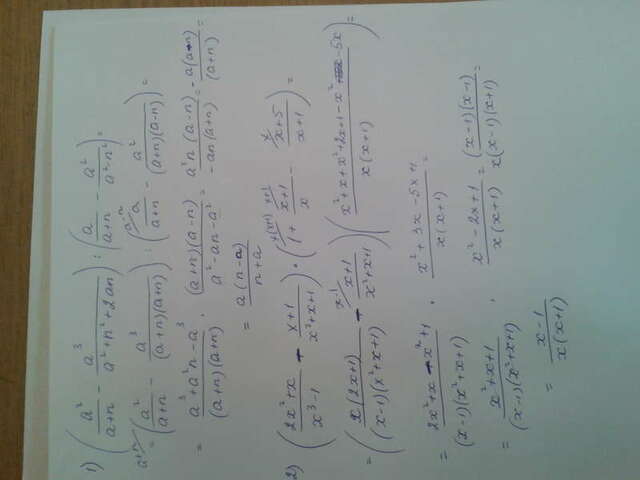 1) (a²/(a+n) - a³/(a²+n²+2an)) : (a/(a+n) - a²/(a²-n²)) =
= (a²/(a+n) - a³/((a+n)(a+n))) : (a/(a+n) - a²/((a+n)(a-n))) =
= (a³+a²n-a³)/((a+n)(a+n)) · ((a+n)(a-n))/(a²-an-a²) = (a²n(a-n))/(-an(a+n)) = - (a(a-n))/(a+n) =
= (a(n-a))/(n+a)
2) ((2x²+x)/(x³-1) - (x+1)/(x²+x+1)) · (1 + (x+1)/x - (x+5)/(x+1)) =
= ((x(2x+1))/((x-1)(x²+x+1)) - (x+1)/(x²+x+1)) ((x²+x+x²+2x+1-x²-5x)/(x(x+1))) =
= (2x²+x-x²+1)/((x-1)(x²+x+1)) · (x²+3x-5x+1)/(x(x+1)) =
= (x²+x+1)/((x-1)(x²+x+1)) · (x²-2x+1)/(x(x+1)) = ((x-1)(x-1))/(x(x-1)(x+1)) =
= (x-1)/(x(x+1))